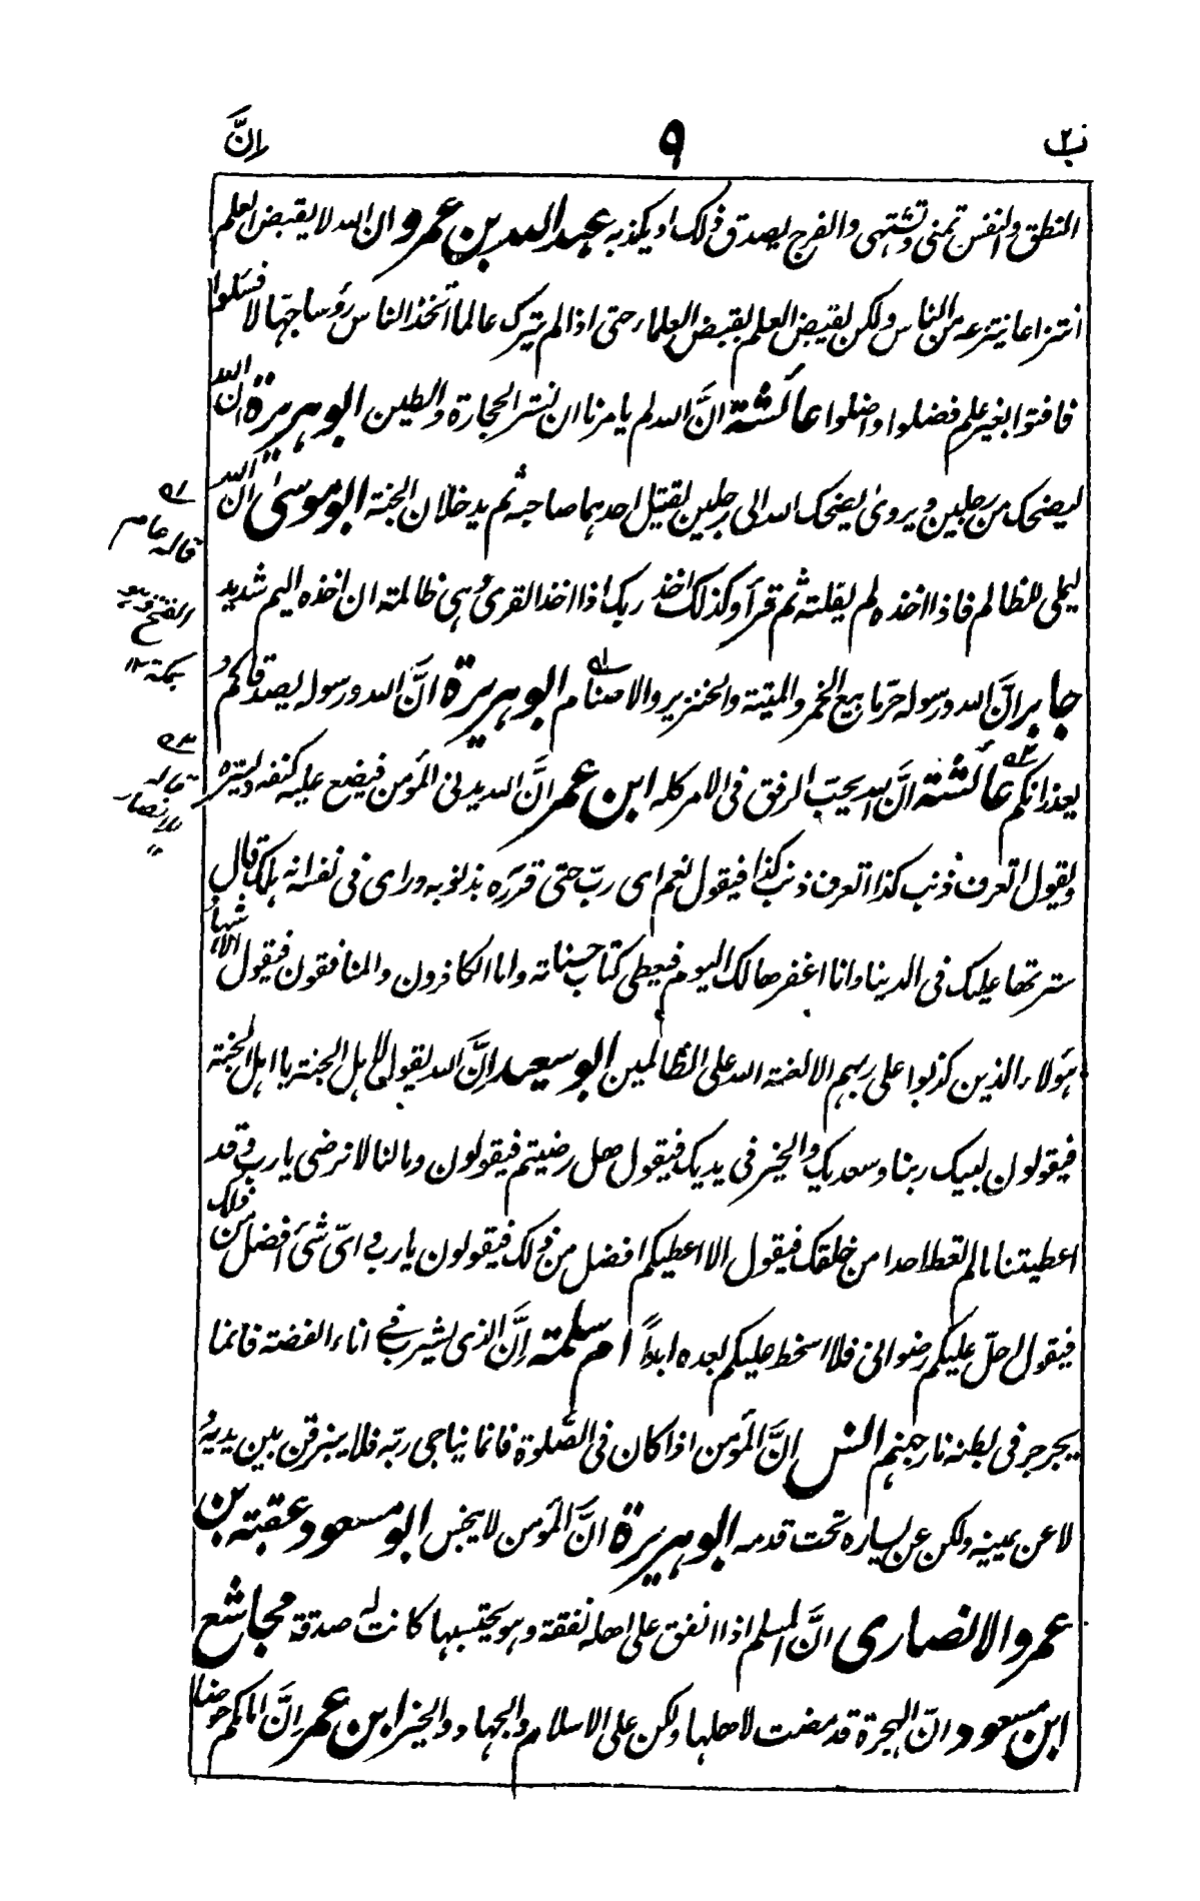 ب٢ ٩ اِنَّ
النطق والنفس تمنى وتشتهى والفرج يصدق ذلك او يكذبه عبد الله بن عمرو ان الله لا يقبض العلم
انتزاعا ينتزعه من الناس ولكن يقبض العلم بقبض العلماء حتى اذا لم يترك عالما اتخذ الناس رؤسا جهالا فسئلوا
فافتوا بغير علم فضلوا واضلوا عائشة انَّ الله لم يامرنا ان نستر الحجارة والطين ابو هريرة ان الله
ليضحك من رجلين ويروى يضحك الله الى رجلين يقتل احدهما صاحبه ثم يدخلان الجنة ابو موسىٰ ان الله
ليملى للظالم فاذا اخذه لم يفلته ثم قرأ وكذلك اخذ ربك اذا اخذ القرىٰ وهى ظالمة ان اخذه اليم شديد
جابر انَّ الله ورسوله حرّما بيع الخمر والميتة والخنزير والاصنام ابو هريرة انَّ الله ورسوله يصدقانكم و
يعذرانكم عائشة انَّ الله يحبّ الرفق فى الامر كله ابن عمر انَّ الله يدنى المؤمن فيضع عليه كنفه ويستره
ويقول اتعرف ذنب كذا اتعرف ذنب كذا فيقول نعم اى ربّ حتى قرّره بذنوبه وراى فى نفسه انه هلك قال
سترتها عليك فى الدنيا وانا اغفرها لك اليوم فيعطى كتاب حسناته واما الكافرون والمنافقون فيقول الاشهاد
هؤلاء الذين كذبوا على ربهم الا لعنة الله على الظالمين ابو سعيد اِنَّ الله يقول لاهل الجنة يا اهل الجنة
فيقولون لبيك ربنا وسعديك والخير فى يديك فيقول هل رضيتم فيقولون وما لنا لا نرضى يا رب وقد
اعطيتنا ما لم تعط احدا من خلقك فيقول الا اعطيكم افضل من ذلك فيقولون يا رب واىّ شئ افضل من ذلك
فيقول احلّ عليكم رضوانى فلا اسخط عليكم بعده ابداً ام سلمة اِنَّ الذى يشرب فى اناء الفضة فانما
يجرجر فى بطنه نار جهنم انس انَّ المؤمن اذا كان فى الصّلوة فانما يناجى ربّه فلا يبزقن بين يديه و
لا عن يمينه ولكن عن يساره تحت قدمه ابو هريرة انَّ المؤمن لا ينجس ابو مسعود عقبة بن
عمرو الانصارى انَّ المسلم اذا انفق على اهله نفقة وهو يحتسبها كانت له صدقة مجاشع
ابن مسعود انّ الهجرة قد مضت لاهلها ولكن على الاسلام والجهاد والخير ابن عمر اِنَّ امامكم حوضا
قاله عام
الفتح وهو
بمكة ١٢
قاله
للانصار